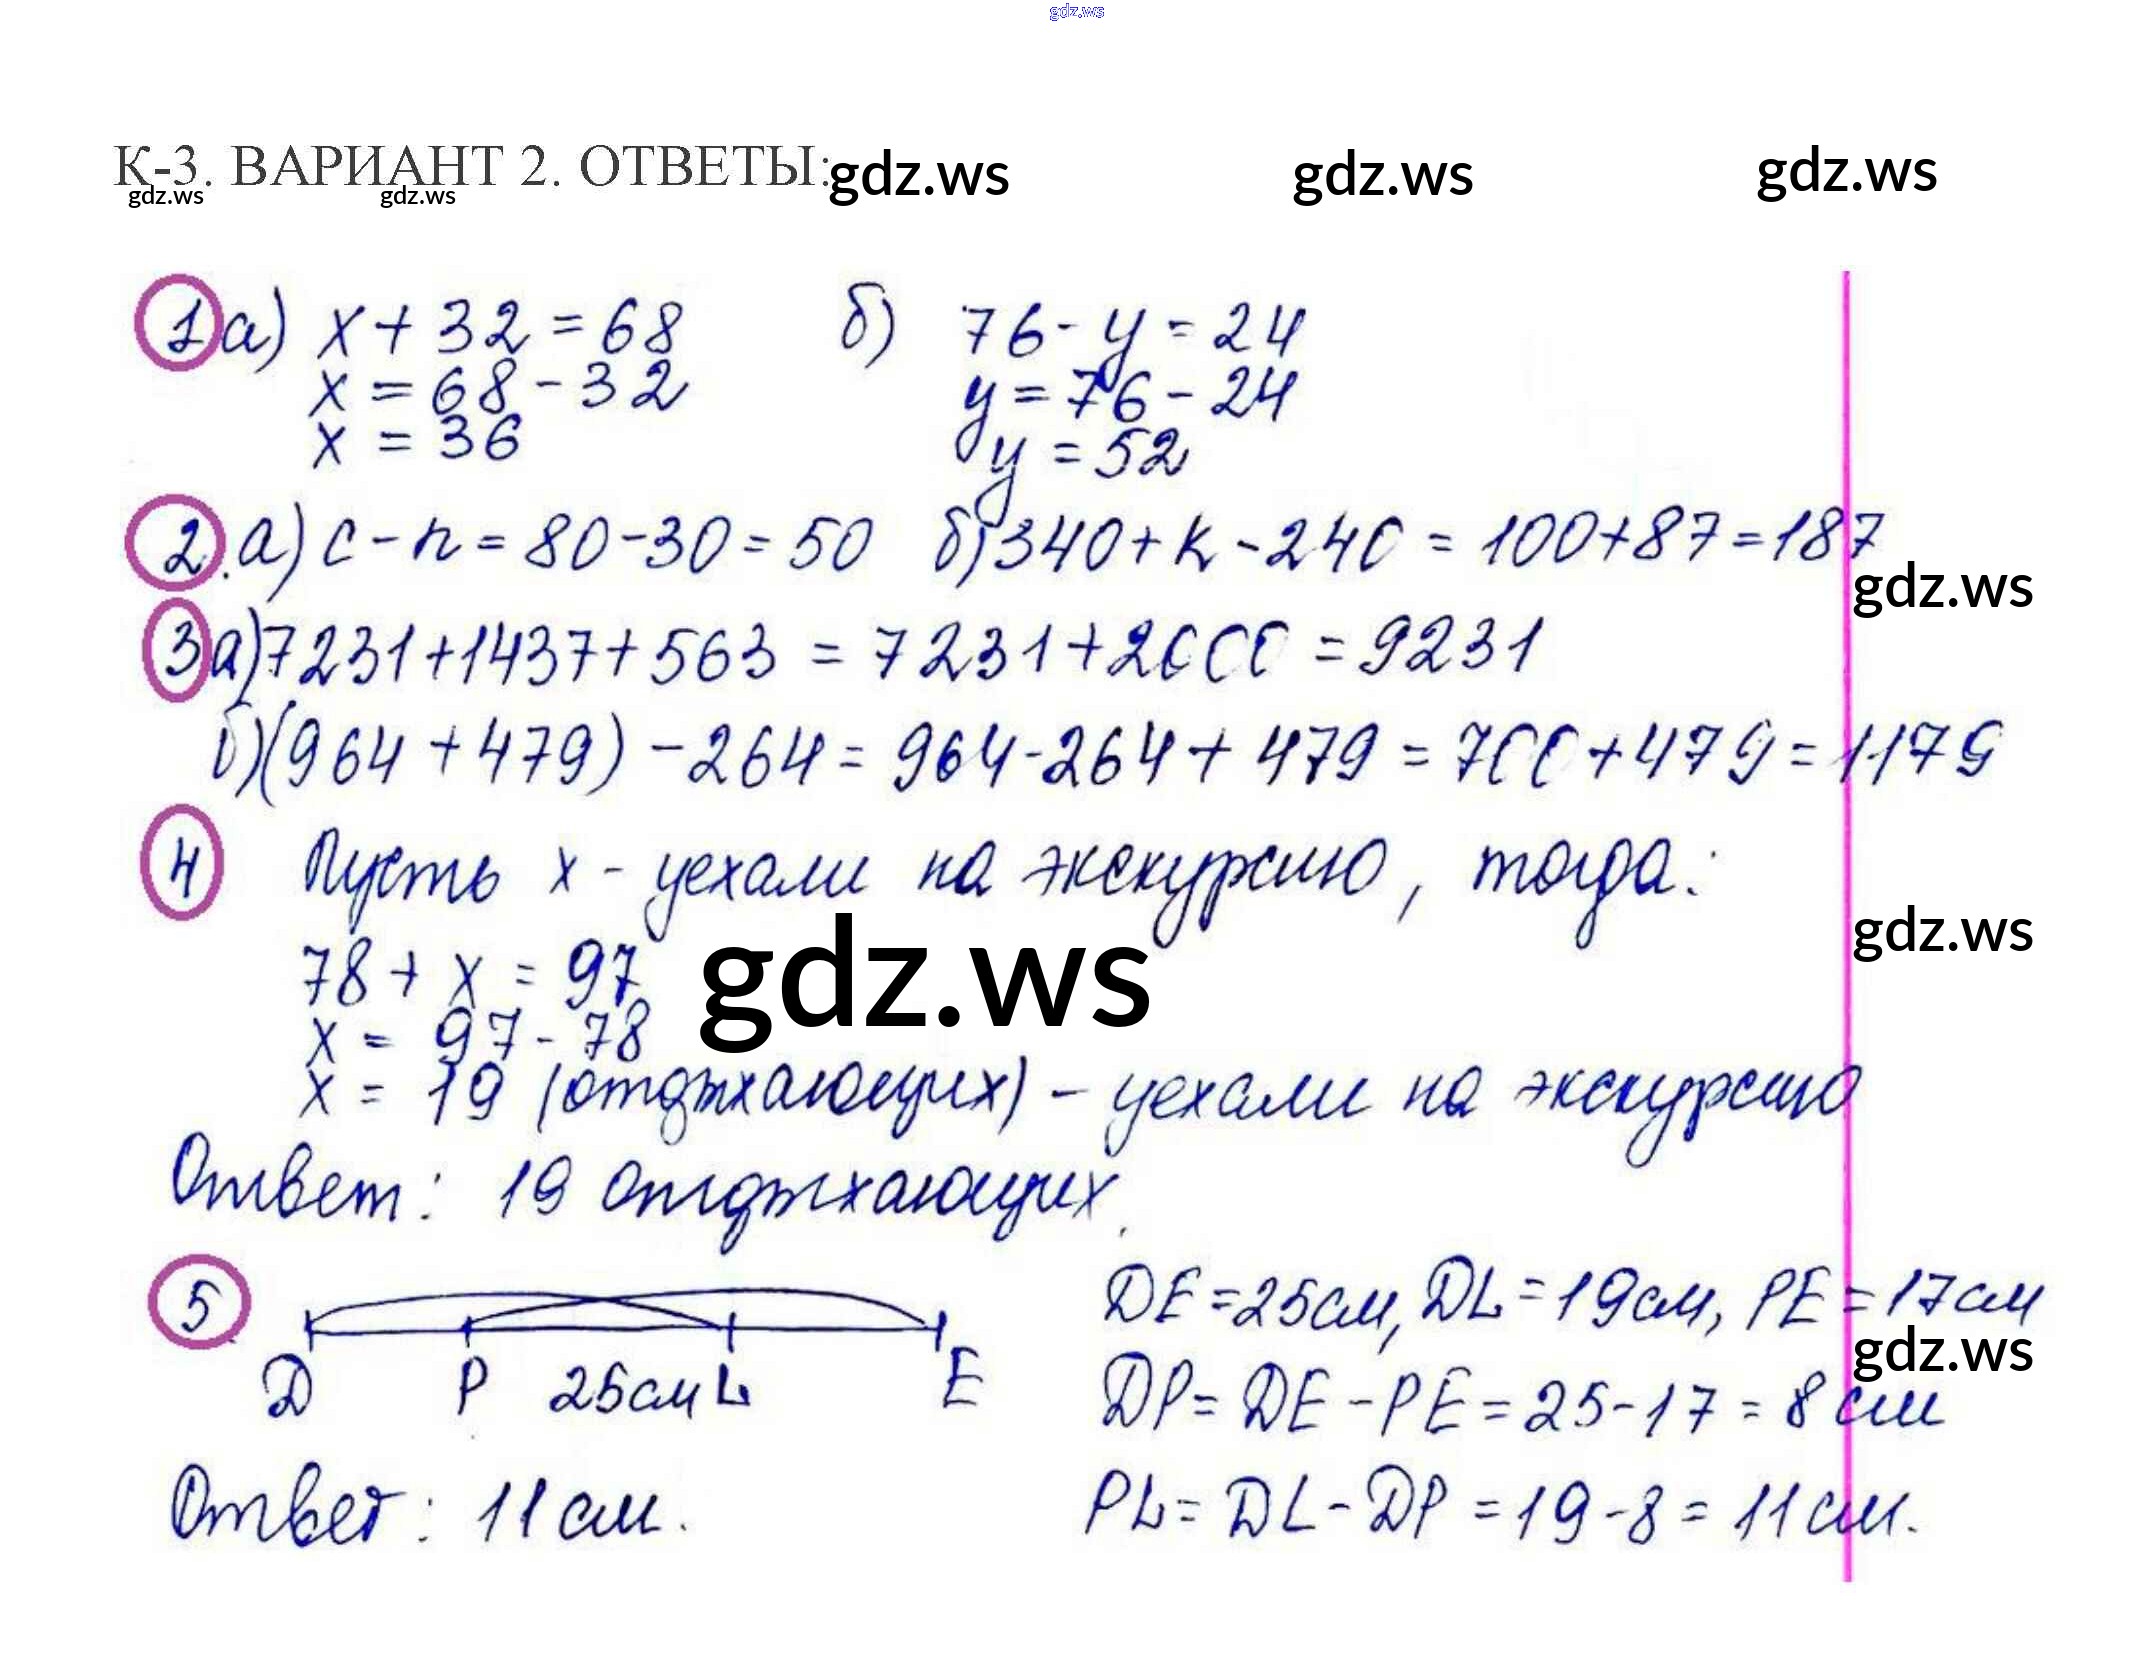 gdz.ws
К-3. ВАРИАНТ 2. ОТВЕТЫ:
gdz.ws gdz.ws gdz.ws gdz.ws gdz.ws
1 а) x + 32 = 68 б) 76 - y = 24
x = 68 - 32 y = 76 - 24
x = 36 y = 52
2. а) c - n = 80 - 30 = 50 б) 340 + k - 240 = 100 + 87 = 187
gdz.ws
3 а) 7231 + 1437 + 563 = 7231 + 2000 = 9231
б) (964 + 479) - 264 = 964 - 264 + 479 = 700 + 479 = 1179
4 Пусть x - уехали на экскурсию, тогда:
gdz.ws
78 + x = 97
gdz.ws
x = 97 - 78
x = 19 (отдыхающих) - уехали на экскурсию
Ответ: 19 отдыхающих.
5 DE = 25см, DL = 19см, PE = 17см
gdz.ws
D P 25см L E DP = DE - PE = 25 - 17 = 8 см
Ответ: 11 см. PL = DL - DP = 19 - 8 = 11 см.